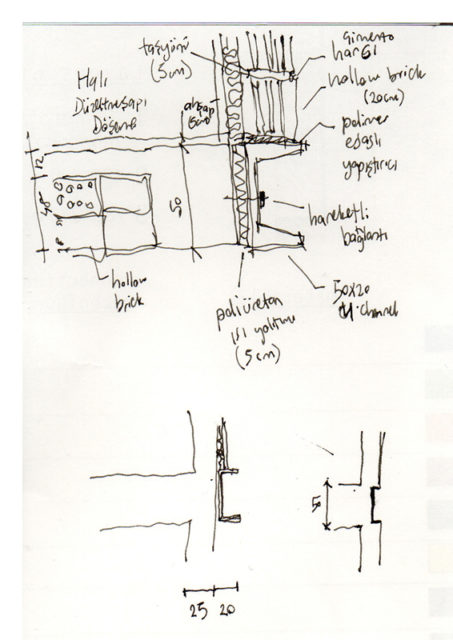 taşyünü
(5cm)
çimento
harcı
Halı
Düzeltme şapı
Döşeme
ahşap
hollow brick
(20cm)
polimer
esaslı
yapıştırıcı
12
50
hareketli
bağlantı
hollow
brick
poliüretan
ısı yalıtımı
(5cm)
50x20
U channel
50
25 20